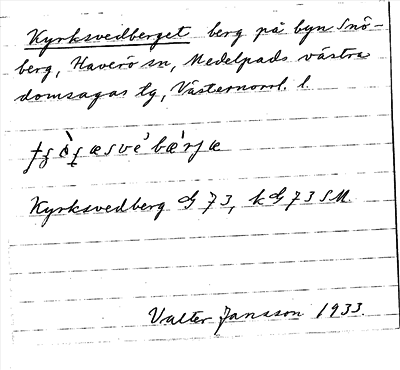 Kyrksvedberget berg på byn Snö-
berg, Haverö sn, Medelpads västra
domsagas tg, Västernorrl. l.
Kyrksvedberg G 73, kG 73 SM.
Valter Jansson 1933.